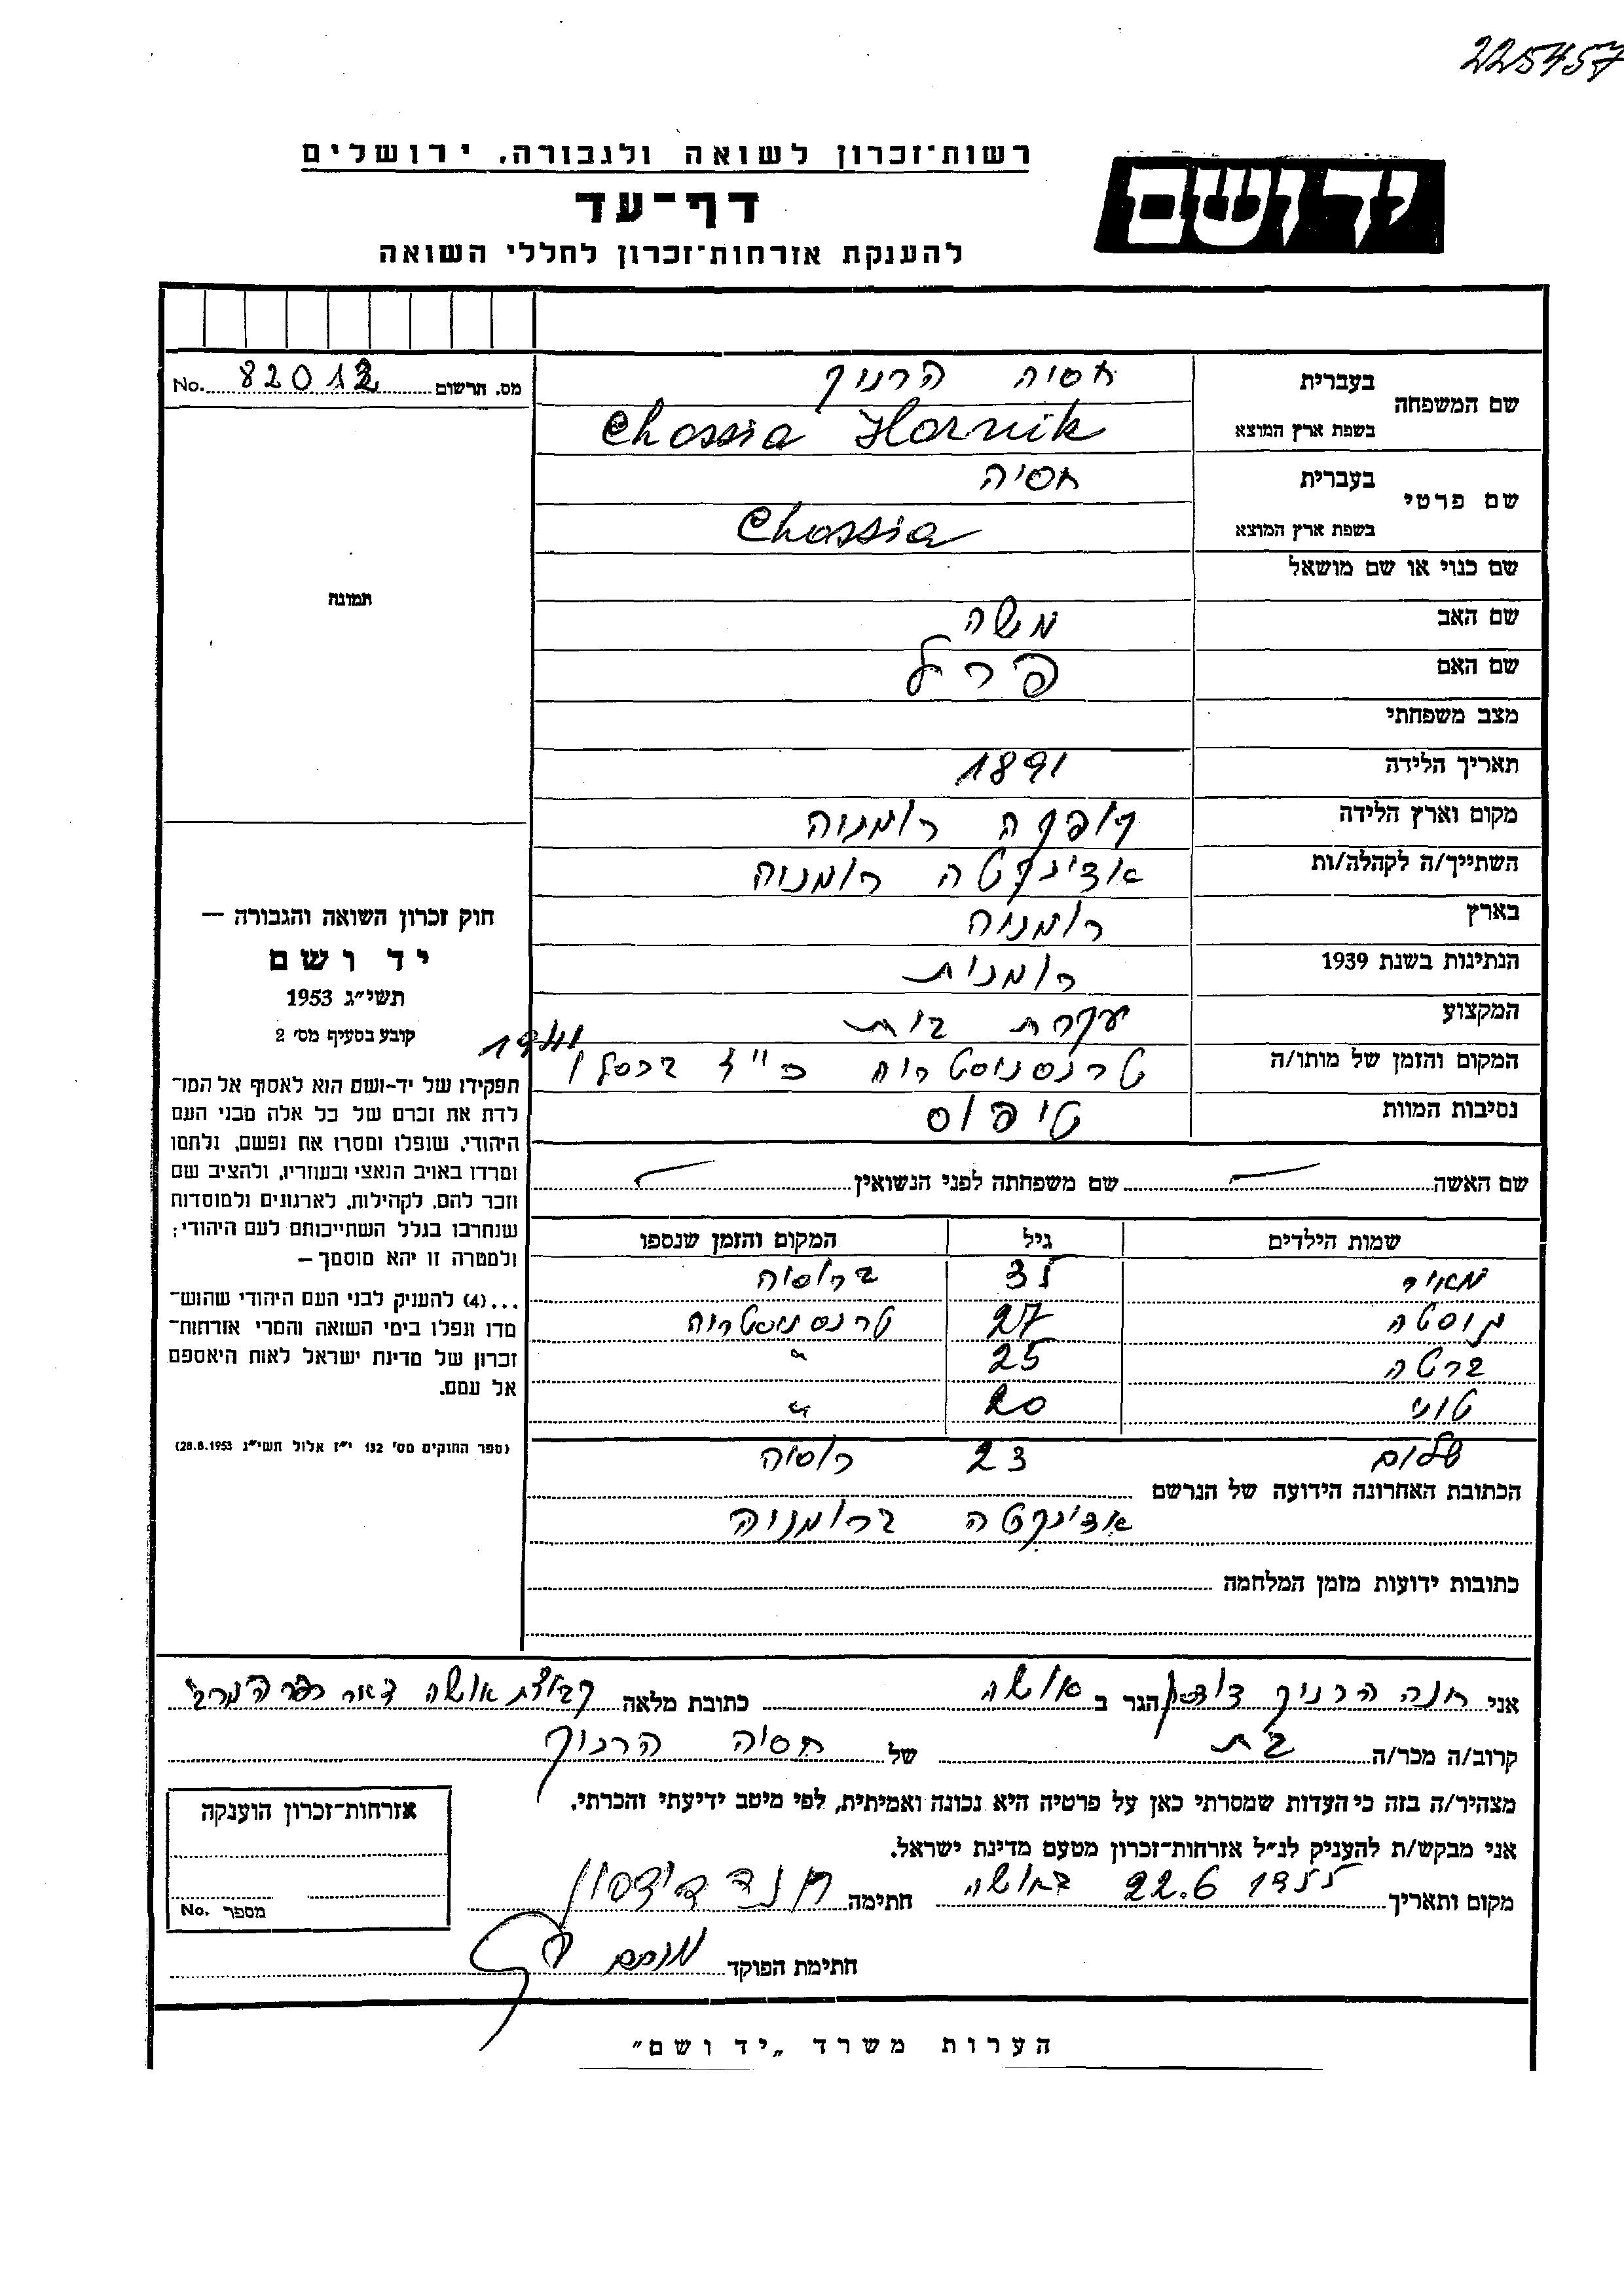 225457
רשות־זכרון לשואה ולגבורה, ירושלים
יד ושם
דף־עד
להענקת אזרחות־זכרון לחללי השואה
מס. הרשום No. 82012
שם המשפחה בעברית חסיה הרניק
בשפת ארץ המוצא Chossia Hornik
שם פרטי בעברית חסיה
בשפת ארץ המוצא Chossia
שם כנוי או שם מושאל
שם האב משה
שם האם פרל
מצב משפחתי
תאריך הלידה 1891
מקום וארץ הלידה רומניה
השתייך/ה לקהלה/ות אדינקטה רומניה
בארץ רומניה
הנתינות בשנת 1939 רומנית
המקצוע עקרת בית
המקום והזמן של מותו/ה טרנסניסטריה כ"ז בכסלו 1941
נסיבות המוות טיפוס
שם האשה שם משפחתה לפני הנשואין
שמות הילדים גיל המקום והזמן שנספו
מאיר 35 ברוסיה
27 טרנסניסטריה
ברטה 25 "
טוני 20 "
שלום 23 רוסיה
הכתובת האחרונה הידועה של הנרשם
אדינקטה ברומניה
כתובות ידועות מזמן המלחמה
תמונה
חוק זכרון השואה והגבורה —
יד ושם
תשי״ג 1953
קובע בסעיף מס׳ 2
תפקידו של יד־ושם הוא לאסוף אל המו־
לדת את זכרם של כל אלה מבני העם
היהודי, שנפלו ומסרו את נפשם, נלחמו
ומרדו באויב הנאצי ובעוזריו, ולהציב שם
וזכר להם, לקהילות, לארגונים ולמוסדות
שנחרבו בגלל השתייכותם לעם היהודי;
ולמטרה זו יהא מוסמך—
...(4) להעניק לבני העם היהודי שהוש־
מדו ונפלו בימי השואה והמרי אזרחות־
זכרון של מדינת ישראל לאות היאספם
אל עמם.
(ספר החוקים מס׳ 132 י״ז אלול תשי״ג 28.8.1953)
אני חנה הרניק הגר ב אושה כתובת מלאה קבוצת אושה דאר כפר המכבי
קרוב/ה מכר/ה בת של חסיה הרניק
מצהיר/ה בזה כי העדות שמסרתי כאן על פרטיה היא נכונה ואמיתית, לפי מיטב ידיעתי והכרתי.
אני מבקש/ת להעניק לנ״ל אזרחות־זכרון מטעם מדינת ישראל.
מקום ותאריך 22.6 באושה חתימה חנה דוידסון
חתימת הפוקד
אזרחות־זכרון הוענקה
מספר No.
הערות משרד „יד ושם״